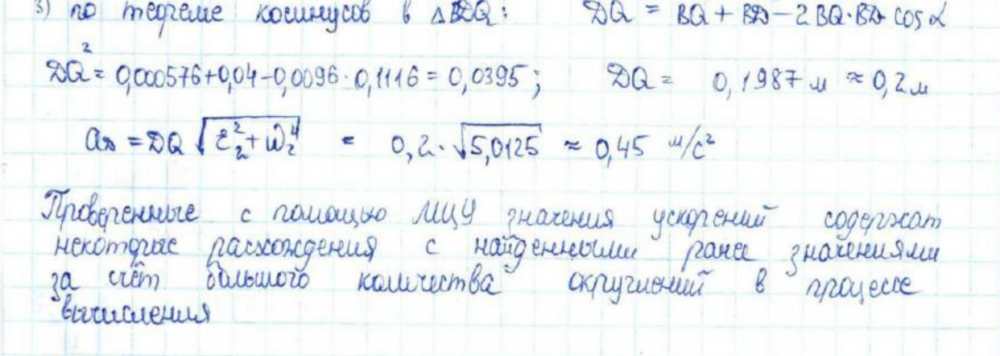 3) по теореме косинусов в ΔBDQ: DQ = BQ + BD - 2BQ·BD cos α
DQ² = 0,000576+0,04-0,0096·0,1116 = 0,0395; DQ = 0,1987 м ≈ 0,2 м
a_D = DQ √(ε₂²+ω₂⁴) = 0,2·√5,0125 ≈ 0,45 м/с²
Проверенные с помощью МЦУ значения ускорений содержат
некоторые расхождения с найденными ранее значениями
за счёт большого количества округлений в процессе
вычисления